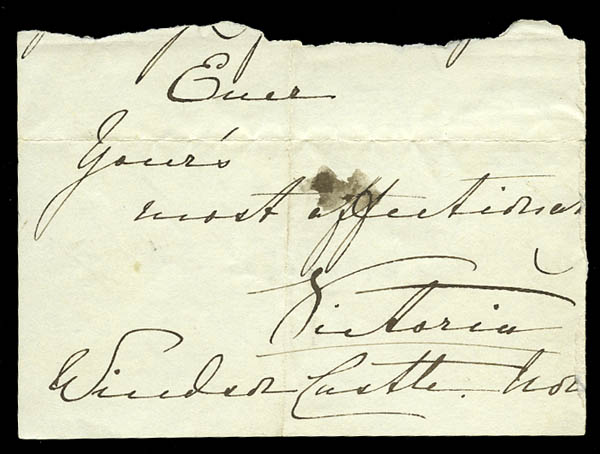 Ever
Your's
most affectiona
Victoria
Windsor Castle. Nov